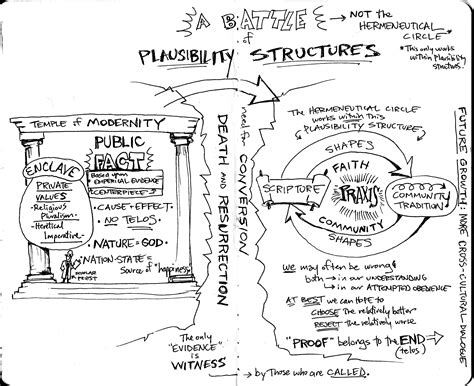 A BATTLE
of
PLAUSIBILITY STRUCTURES
NOT THE
HERMENEUTICAL
CIRCLE
*This only works
within Plausibility
Structures.
TEMPLE of MODERNITY
PUBLIC
FACT
Based upon
EMPIRICAL EVIDENCE
CENTERPIECE
ENCLAVE
PRIVATE
VALUES
-Religious
Pluralism
-Heretical
Imperative
•CAUSE + EFFECT.
•NO TELOS.
•NATURE = GOD.
•NATION-STATE =
Source of "happiness"
SECULAR
PRIEST
DEATH AND RESURRECTION
need for CONVERSION
The only
"EVIDENCE"
is WITNESS
by Those who are CALLED.
The HERMENEUTICAL CIRCLE
works within This
PLAUSIBILITY STRUCTURE
SHAPES
FAITH
SCRIPTURE
PRAXIS
COMMUNITY
TRADITION
COMMUNITY
SHAPES
we may often be wrong
both → in our UNDERSTANDING
→ in our ATTEMPTED OBEDIENCE
AT BEST we can HOPE to
CHOOSE the relatively better
REJECT the relatively worse
"PROOF" belongs to the END
(telos)
FUTURE GROWTH: MORE CROSS-CULTURAL DIALOGUE